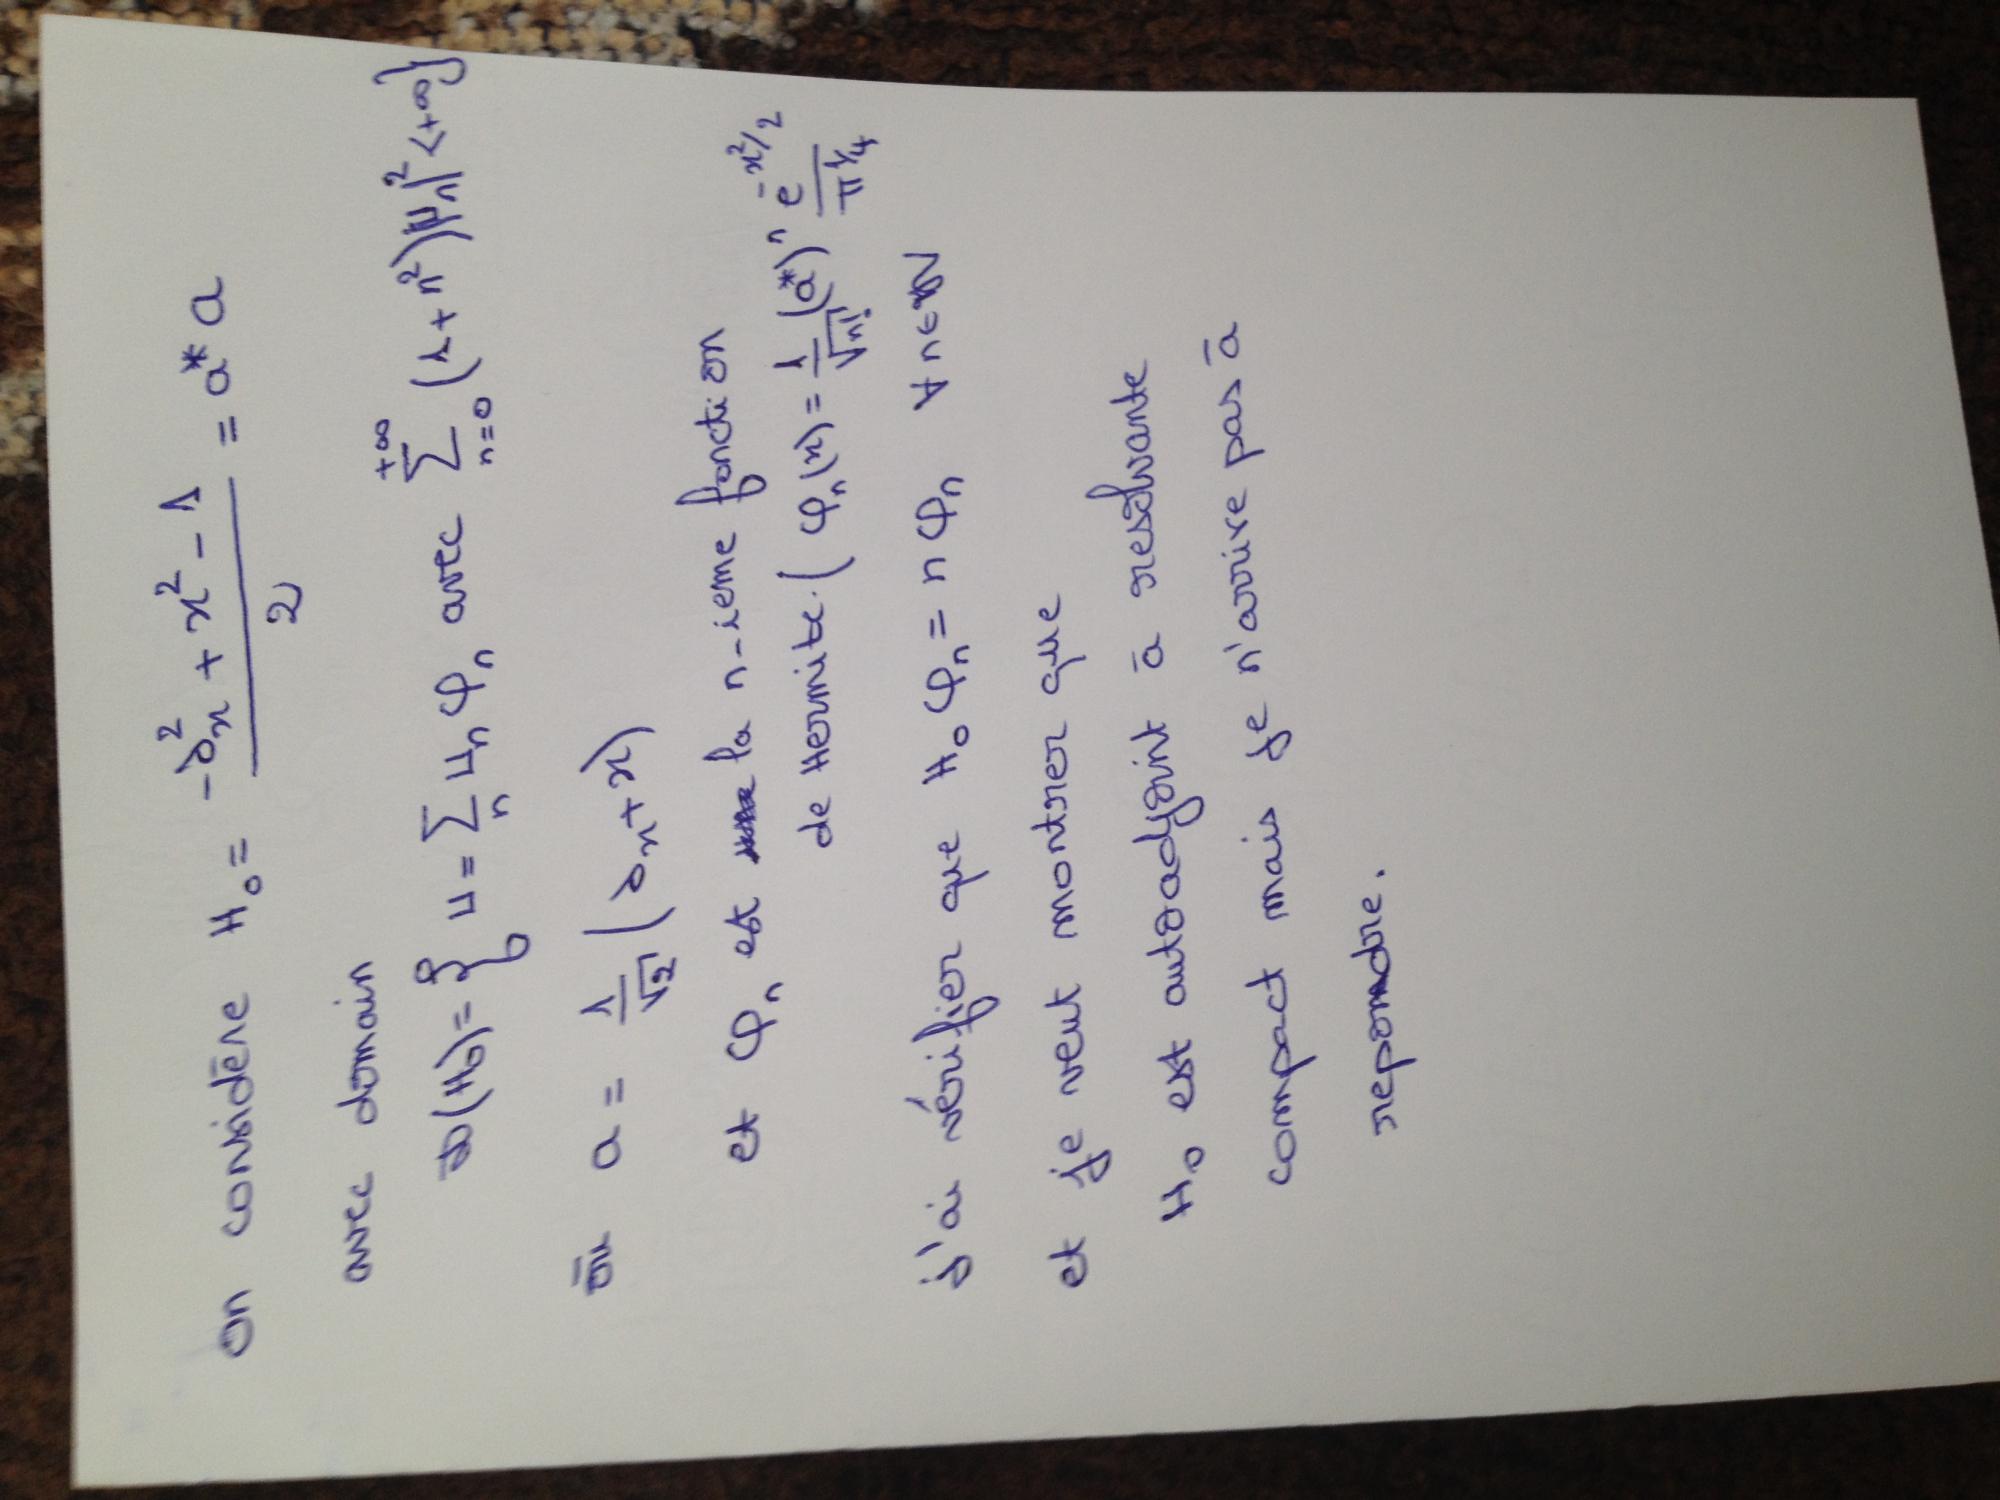 on considère H₀ = (-∂ₓ² + x² - 1)/2 = a* a
avec domain
D(H₀) = { u = Σₙ uₙ φₙ avec Σₙ₌₀^{+∞} (1+n²)|uₙ|² < +∞}
où a = 1/√2 (∂ₓ + x)
et φₙ est la n-ieme fonction
de Hermite. ( φₙ(x) = 1/√n! (a*)ⁿ e^{-x²/2}/π^{1/4}
j'ai vérifier que H₀ φₙ = n φₙ ∀ n ∈ ℕ
et je veut montrer que
H₀ est autoadjoint à resolvante
compact mais je n'arrive pas à
repondre.